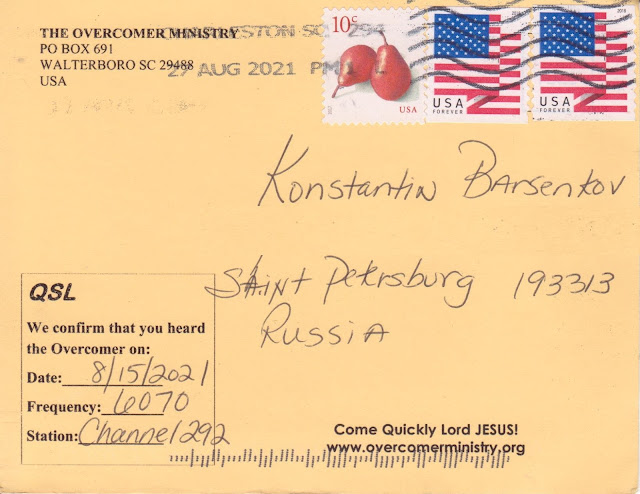 THE OVERCOMER MINISTRY
PO BOX 691
WALTERBORO SC 29488
USA
CHARLESTON SC 294
27 AUG 2021 PM
10c
USA
2018
USA
FOREVER
2018
USA
FOREVER
Konstantin Barsenkov
Saint Petersburg 193313
Russia
QSL
We confirm that you heard
the Overcomer on:
Date: 8/15/2021
Frequency: 6070
Station: Channel 292
Come Quickly Lord JESUS!
www.overcomerministry.org